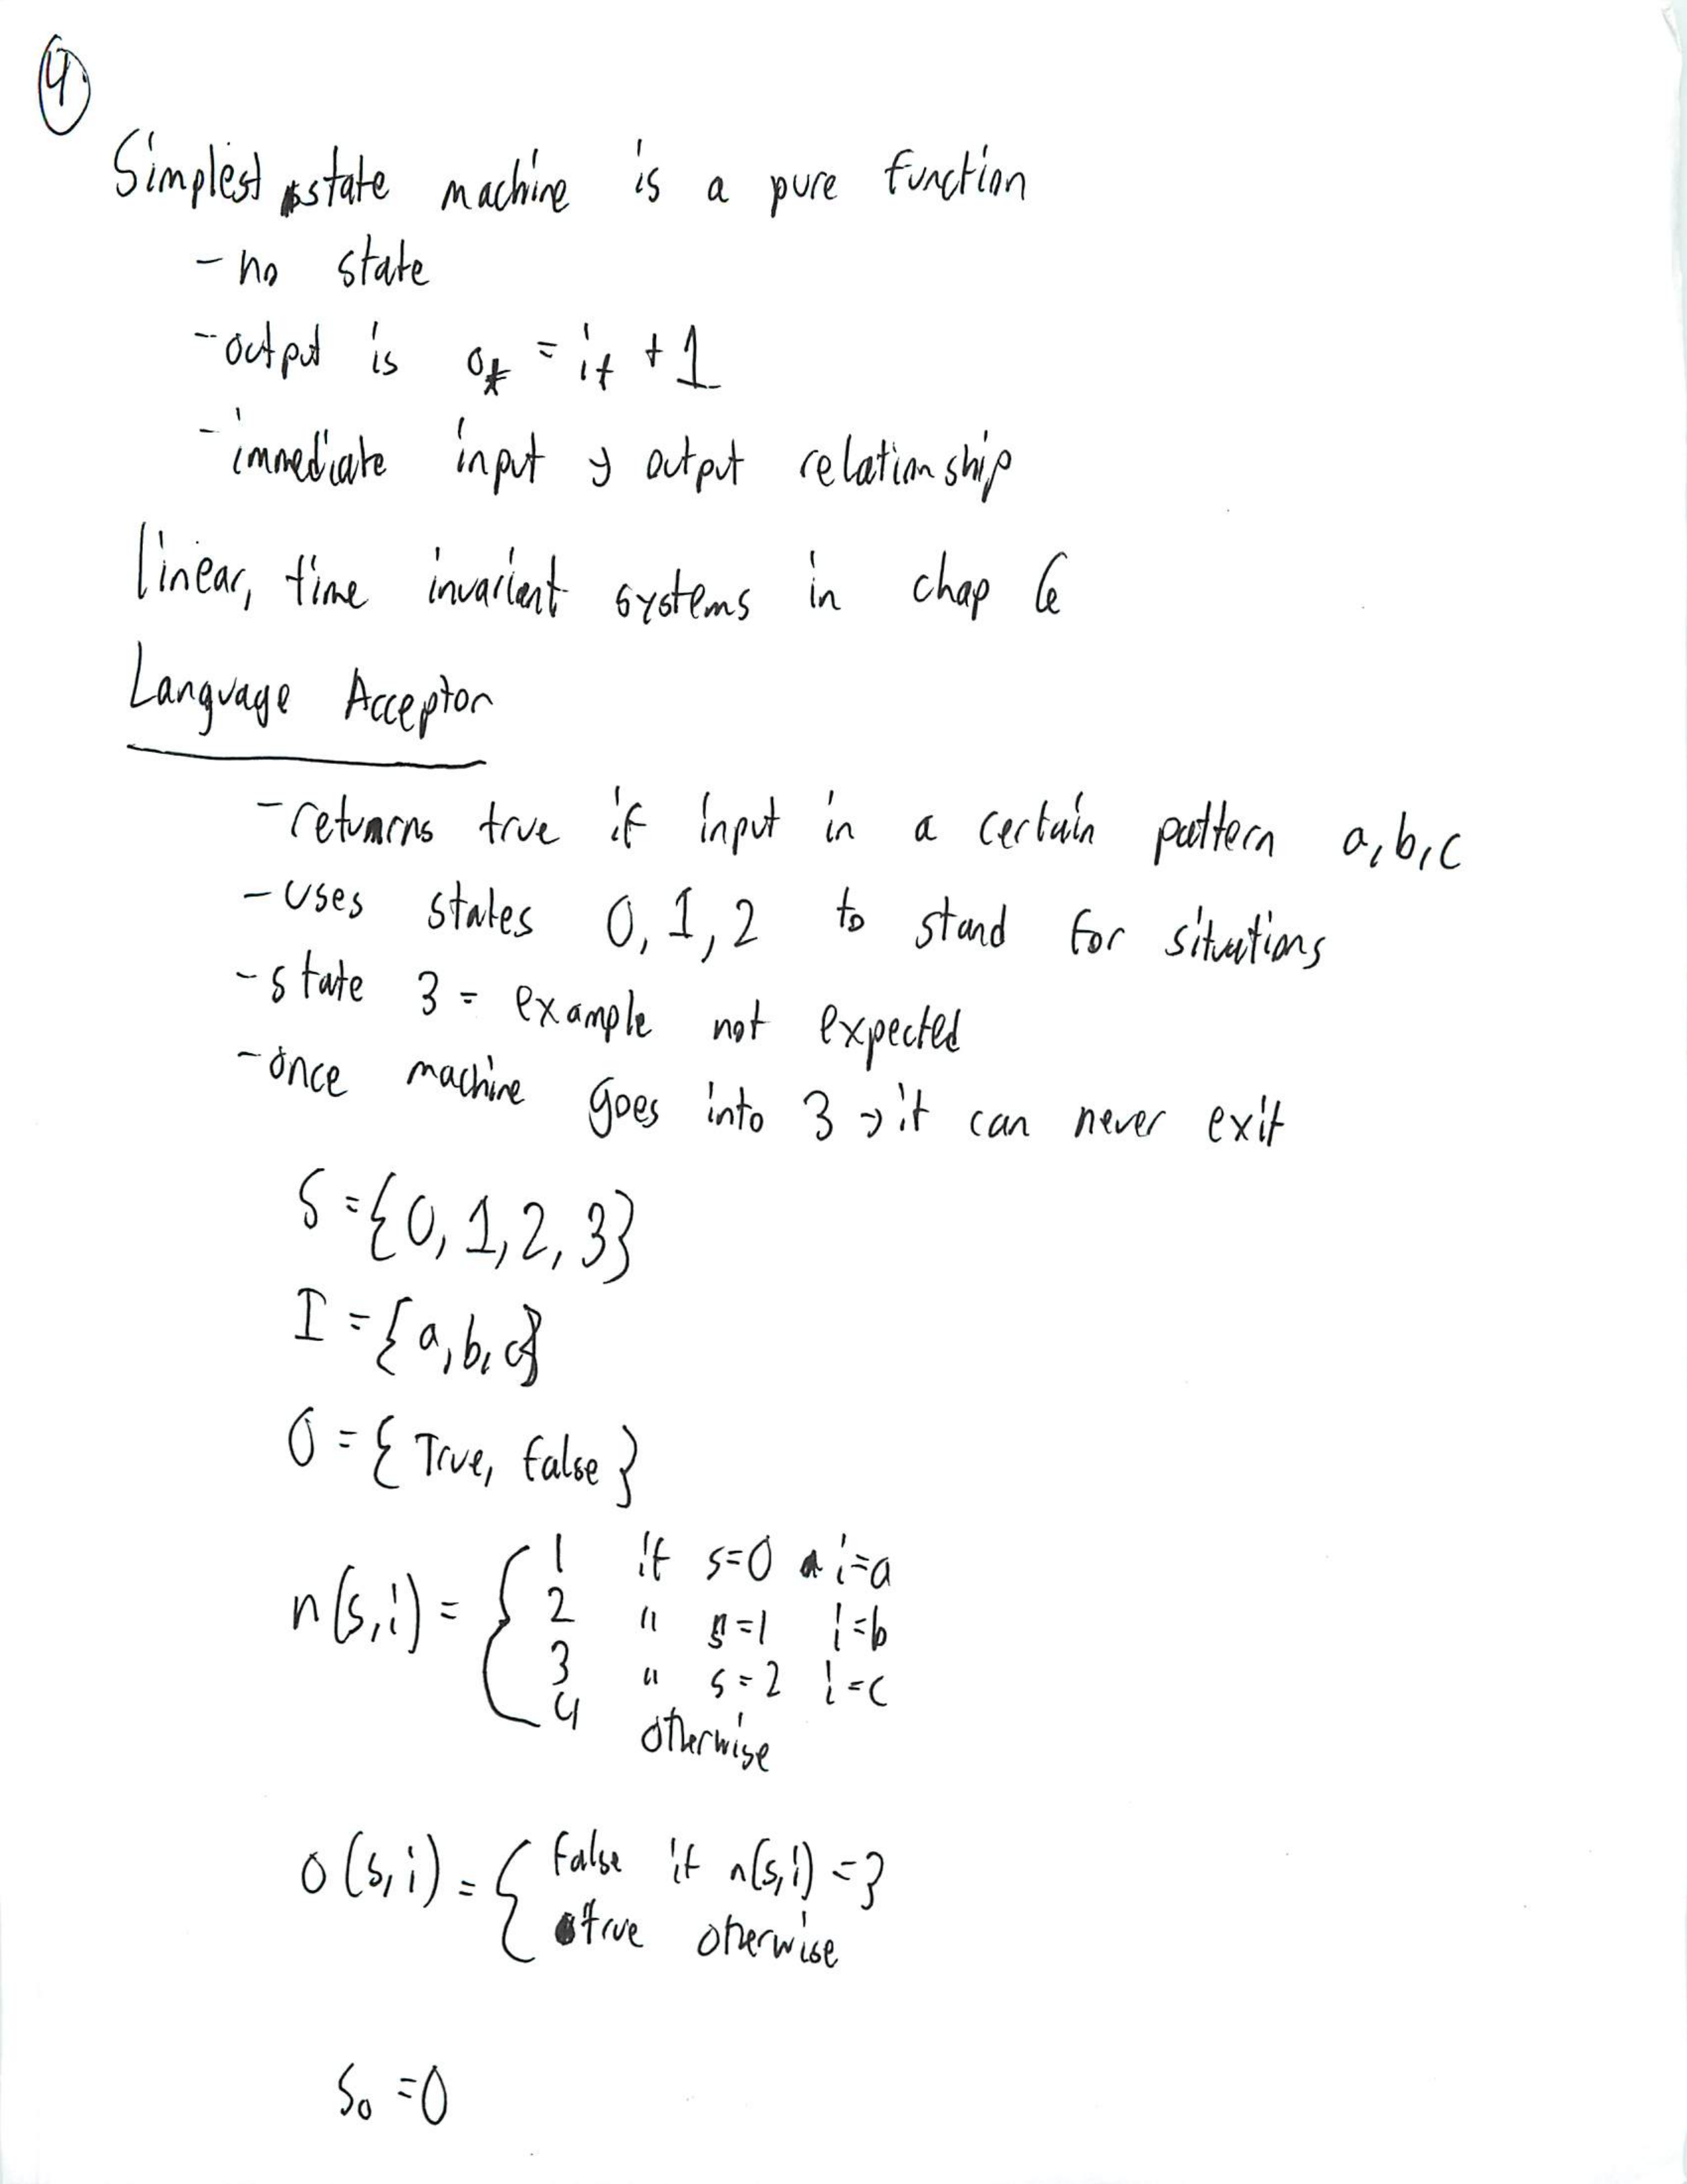 4
Simplest state machine is a pure function
- no state
- output is o_t = i_t + 1
- immediate input y output relationship
linear, time invariant systems in chap 6
Language Acceptor
- returns true if input in a certain pattern a,b,c
- uses states 0, 1, 2 to stand for situations
- state 3 = example not expected
- once machine goes into 3 → it can never exit
S = {0, 1, 2, 3}
I = {a, b, c}
O = {True, False}
n(s,i) = { 1 if s=0 i=a
2 " s=1 i=b
3 " s=2 i=c
4 otherwise
o(s,i) = { False if n(s,i) = 3
true otherwise
s₀ = 0